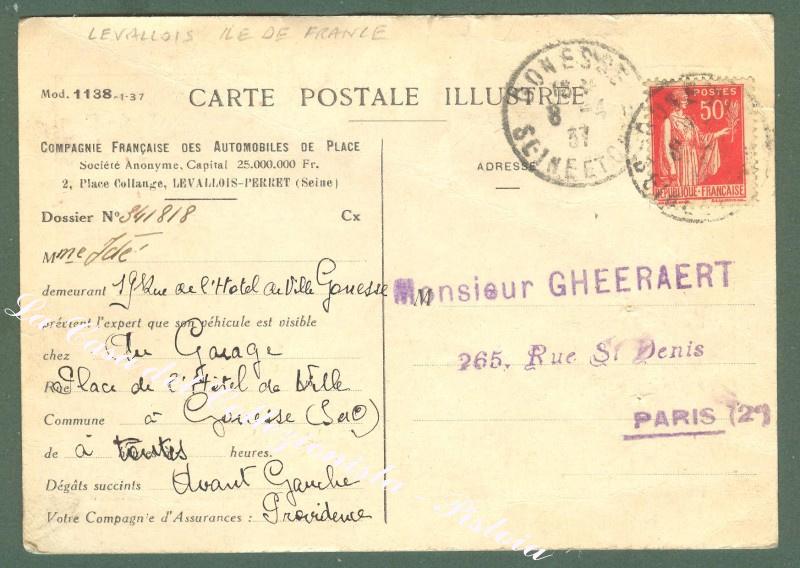 LEVALLOIS ILE DE FRANCE
Mod. 1138-1-37
CARTE POSTALE ILLUSTRÉE
COMPAGNIE FRANÇAISE DES AUTOMOBILES DE PLACE
Société Anonyme, Capital 25.000.000 Fr.
2, Place Collange, LEVALLOIS-PERRET (Seine)
Dossier N° 341818 Cx
Mme Idé
demeurant 19 Rue de l'Hotel de Ville Gonesse
prévient l'expert que son véhicule est visible
chez Au Garage
Rue Place de l'Hôtel de Ville
Commune à Gonesse (S&O)
de à toutes heures.
Dégâts succints Avant Gauche
Votre Compagnie d'Assurances : Providence
ADRESSE
GONESSE
8 -4
37
SEINE ET O
POSTES
50c
REPUBLIQUE-FRANÇAISE
M
Monsieur GHEERAERT
265, Rue St Denis
PARIS (2e)
La Casa del Collezionista - Pistoia